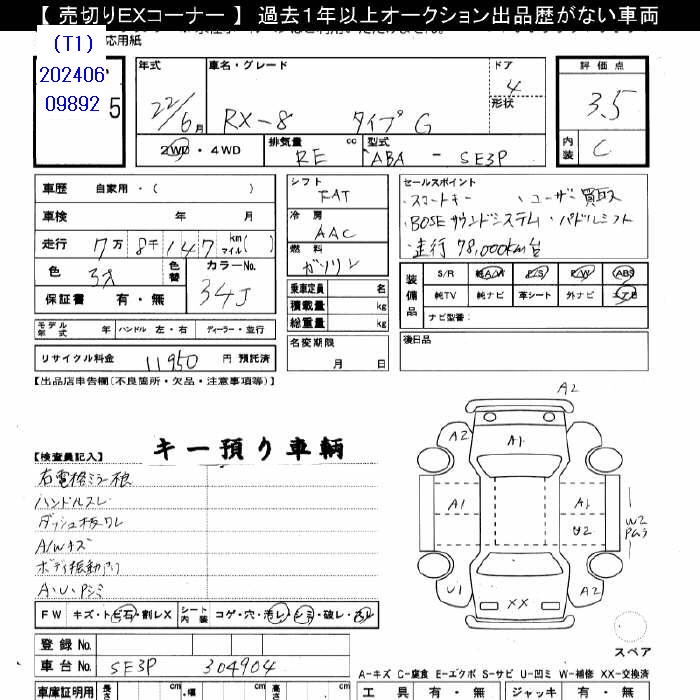 【 売切りEXコーナー 】 過去1年以上オークション出品歴がない車両
(T1)
202406
09892
5
応用紙
年式
22/6月
車名・グレード
RX-8 タイプG
ドア
4
形状
評価点
3.5
内装
C
2WD・4WD
排気量 cc
RE
型式
ABA - SE3P
車歴 自家用・( )
車検 年 月
走行 7万 8千 147 km マイル( )
色
色替
カラーNo.
34J
保証書 有・無
モデル年式 年 ハンドル 左・右 ディーラー・並行
リサイクル料金 11950 円 預託済
シフト
FAT
冷房
AAC
燃料
ガソリン
乗車定員 名
積載量 kg
総重量 kg
名変期限
月 日
セールスポイント
・スマートキー ・ユーザー買取
・BOSEサウンドシステム・パドルシフト
・走行 78,000km台
装備品
S/R 純A/W P/S P/W ABS
純TV 純ナビ 革シート 外ナビ エアB
ナビ型番:
後日品
【出品店申告欄(不良箇所・欠品・注意事項等)】
キー預り車輌
【検査員記入】
右電格ミラー
ハンドルスレ
ダッシュ板ワレ
A/Wキズ
ボディ振動アリ
A・U・Pシミ
FW キズ・ト石・割レX シート内装 コゲ・穴・汚レ・シミ・破レ
登録No.
車台No. SE3P 304904
車庫証明用 長さ cm 幅 cm 高さ cm
A2
A2
A1
A1
A1
U2
W2
Pムラ
A2
U1
XX
スペア
A-キズ C-腐食 E-エクボ S-サビ U-凹ミ W-補修 XX-交換済
工具 有・無 ジャッキ 有・無